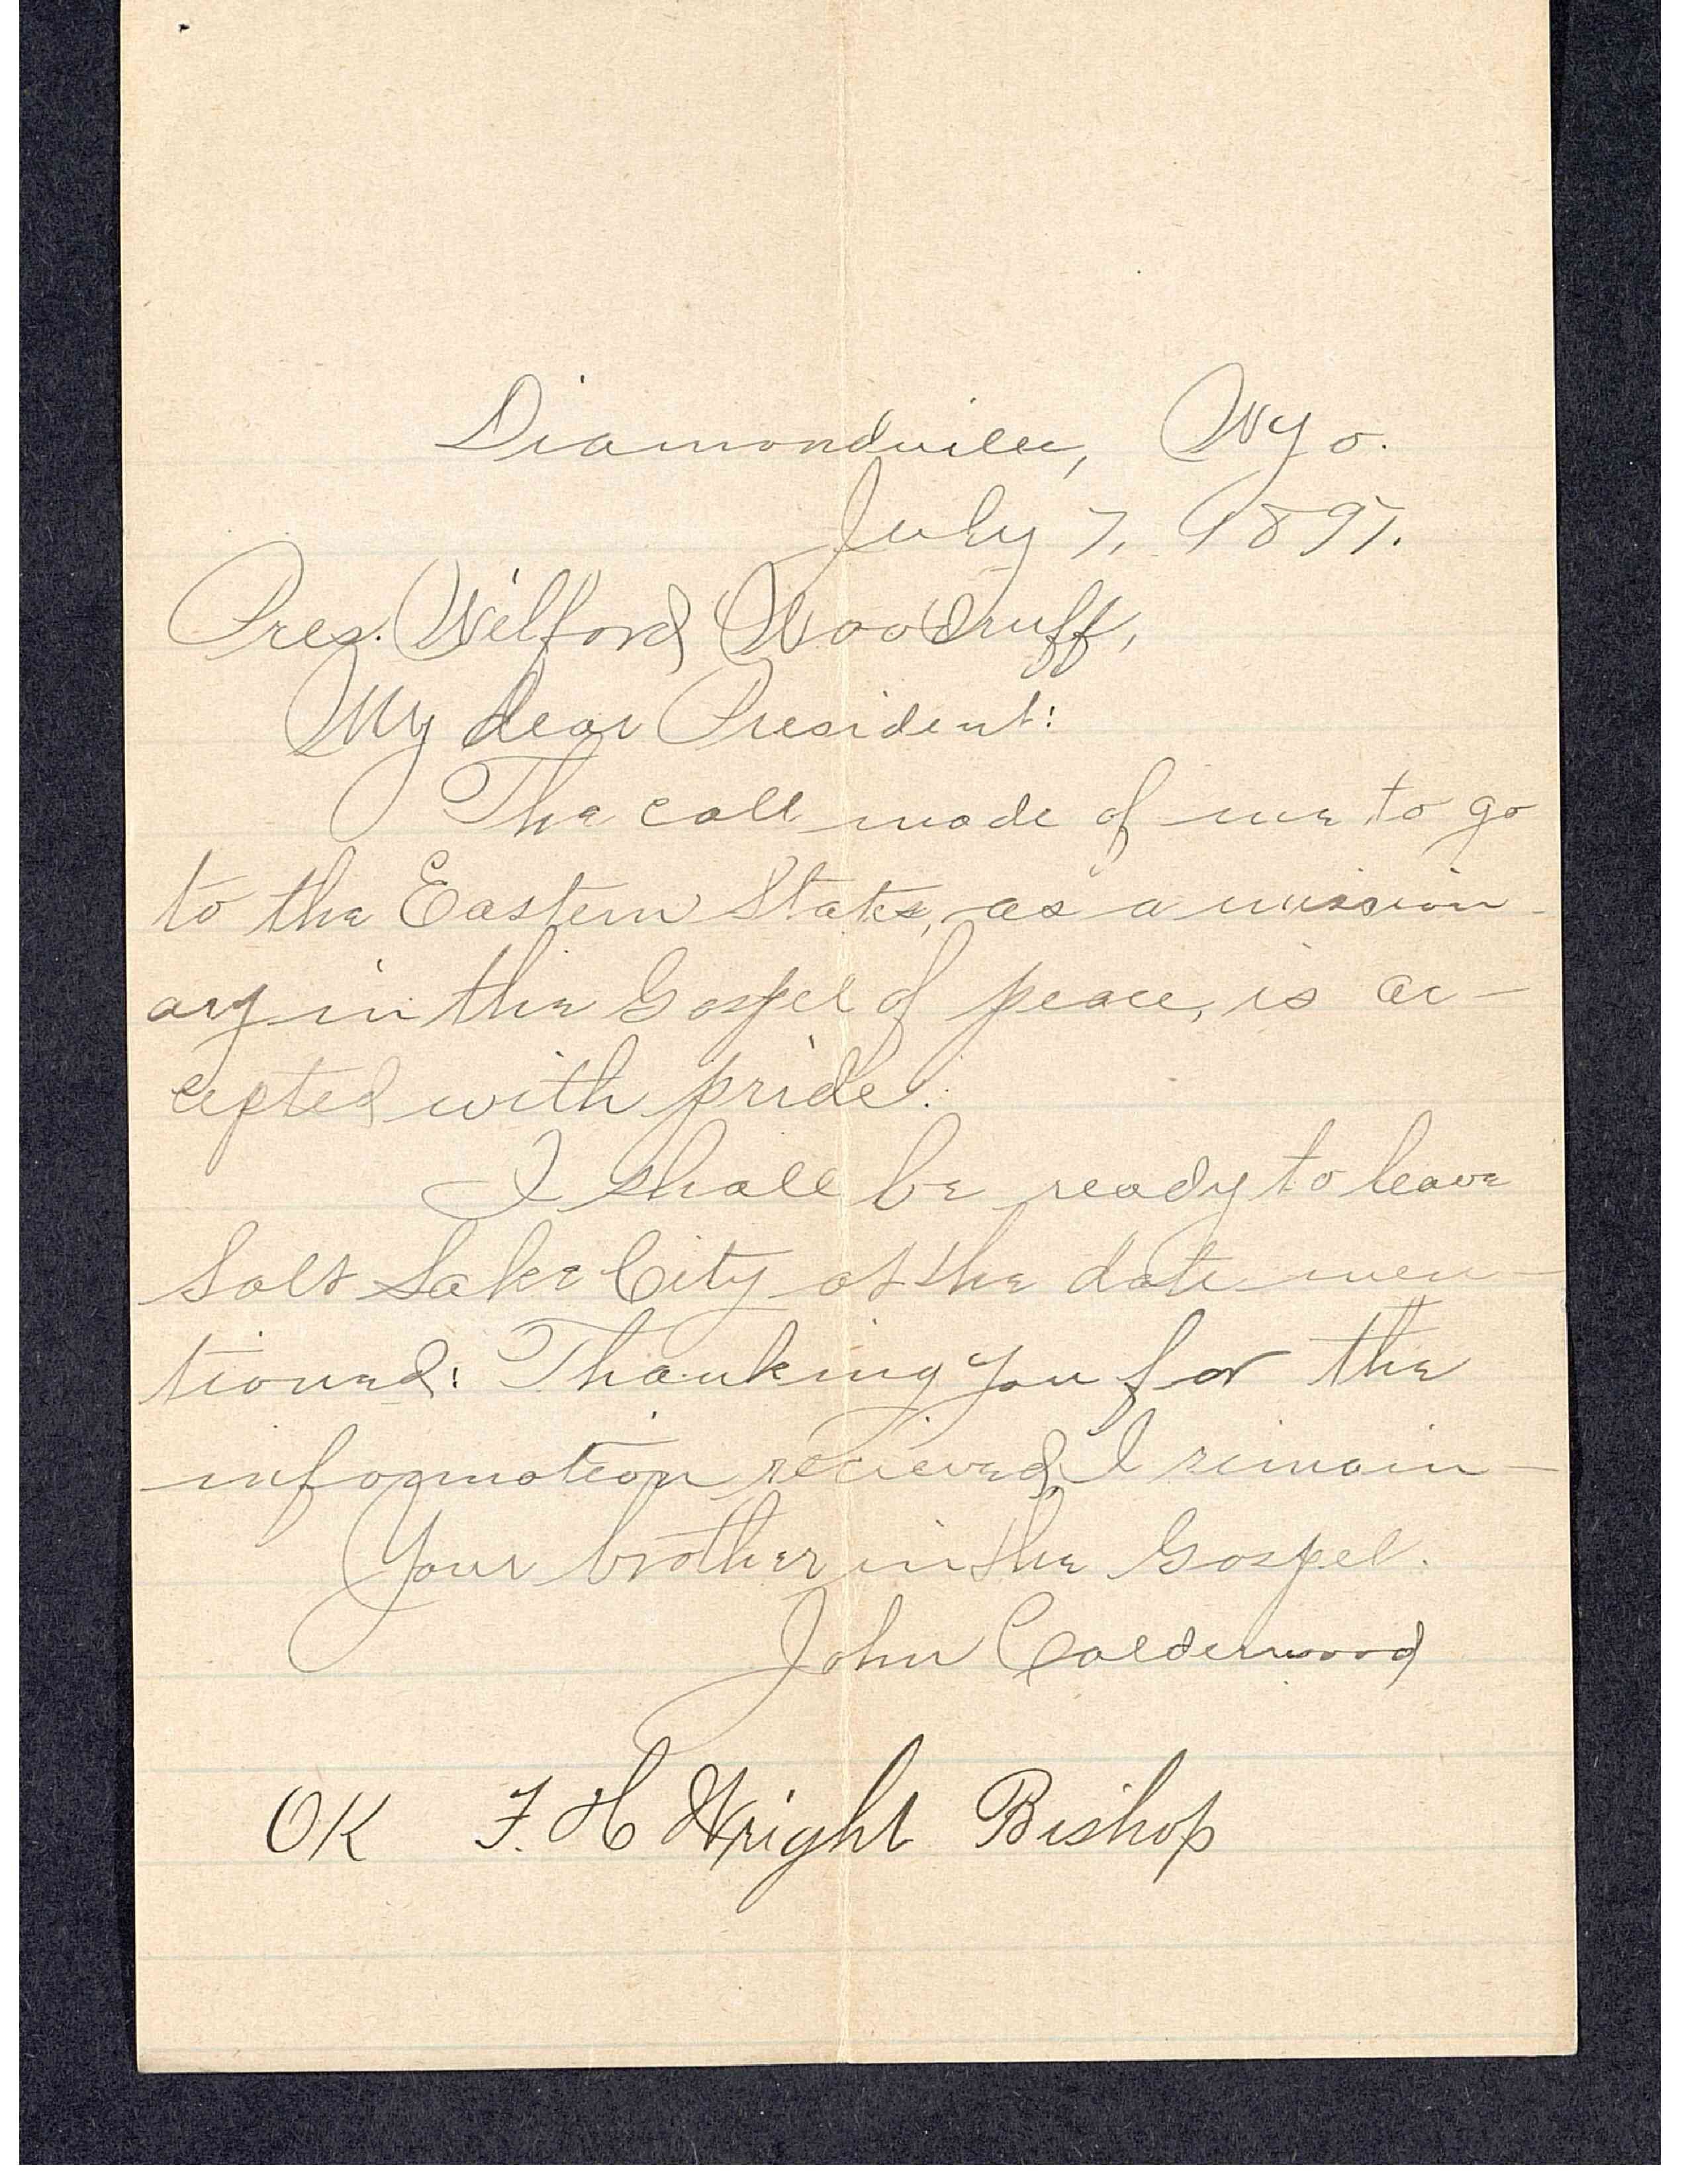 Diamondville, Wyo.
July 7, 1897.
Pres. Wilford Woodruff,
My dear President:
The call made of me to go
to the Eastern States, as a mission-
ary in the Gospel of peace, is ac-
cepted with pride.
I shall be ready to leave
Salt Lake City at the date men-
tioned: Thanking you for the
information recieved, I remain—
Your brother in the Gospel.
John Calderwood
OK F. H Wright Bishop